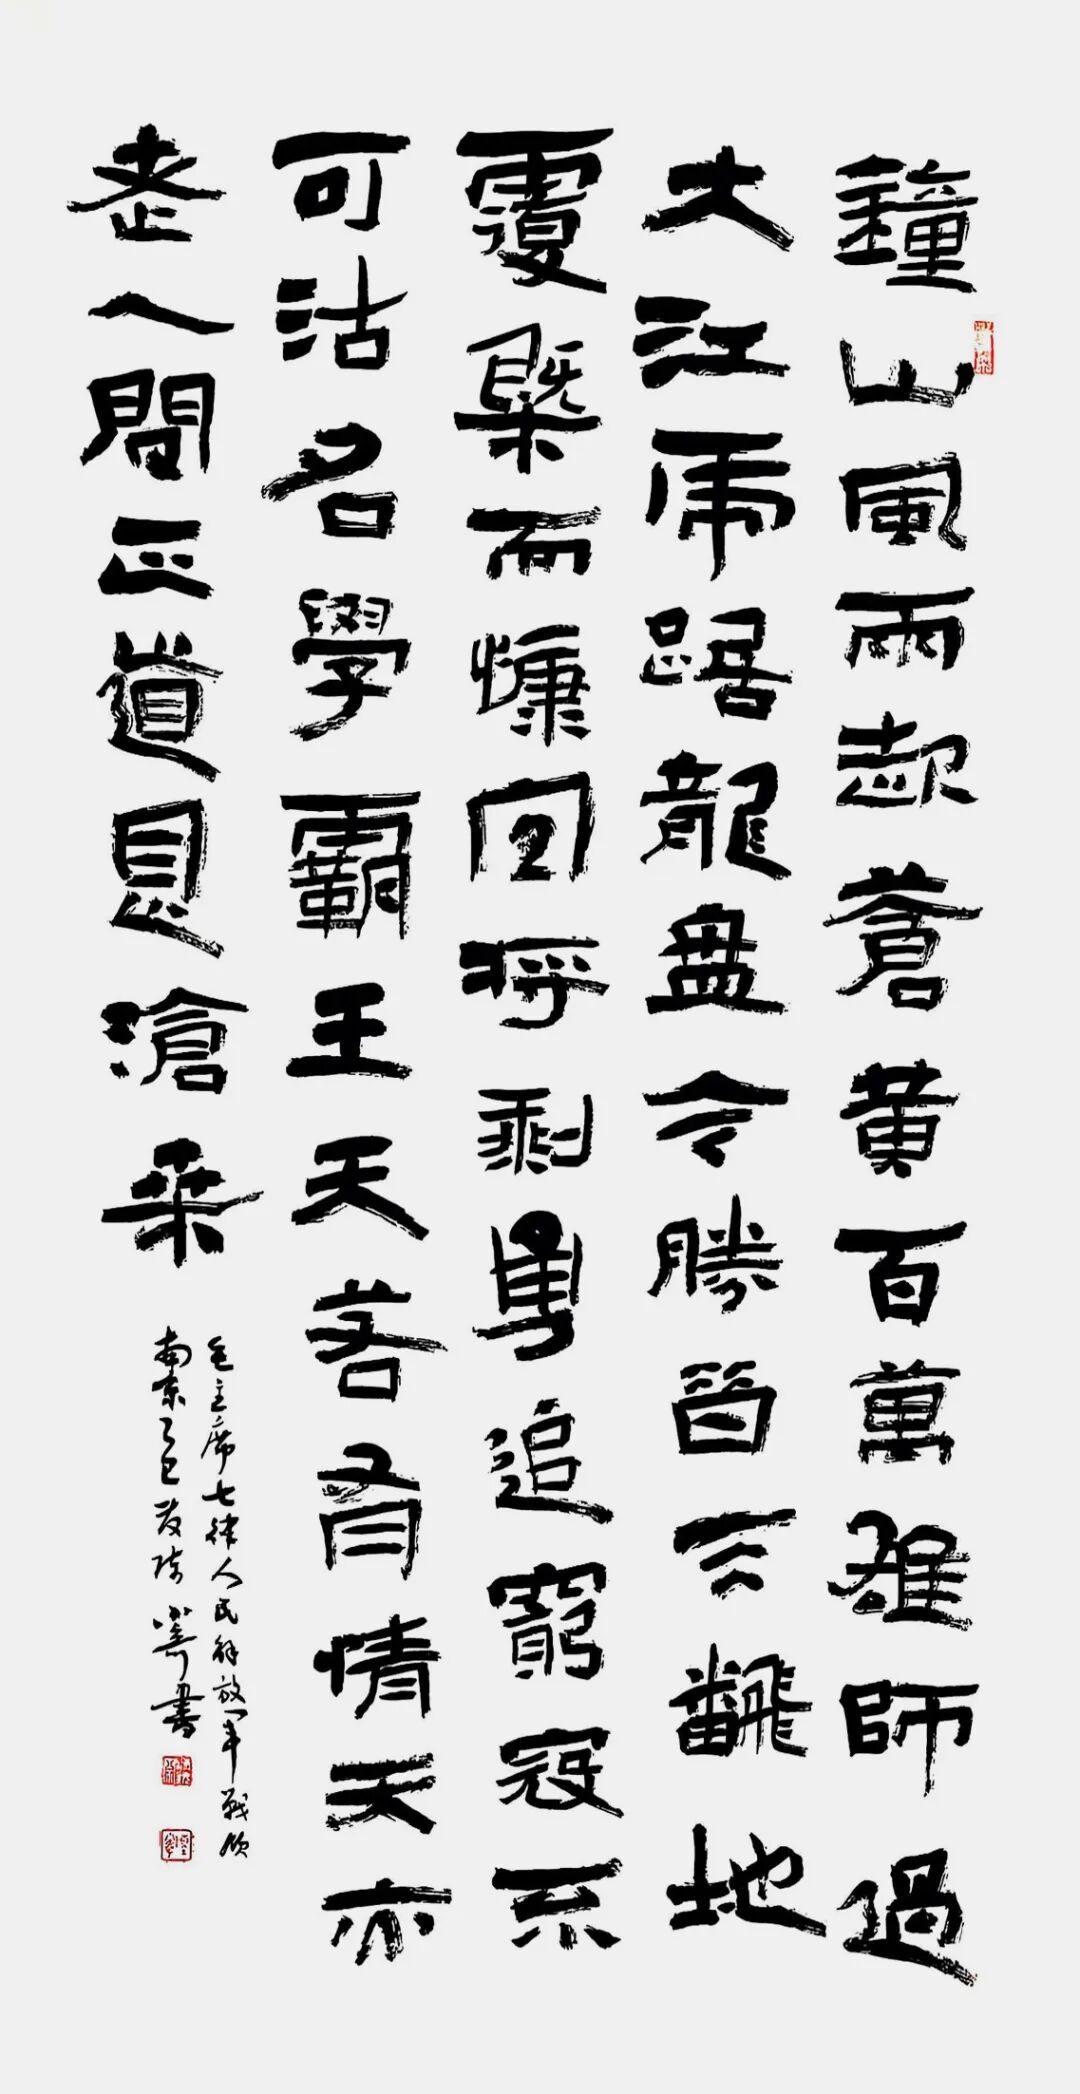 鐘山風雨起蒼黃百萬雄師過
大江虎踞龍盤今勝昔天飜地
覆槩而慷宜將剩勇追窮寇不
可沽名學霸王天若有情天亦
老人間正道是滄桑
毛主席七律人民解放军戰领
南京乙巳書